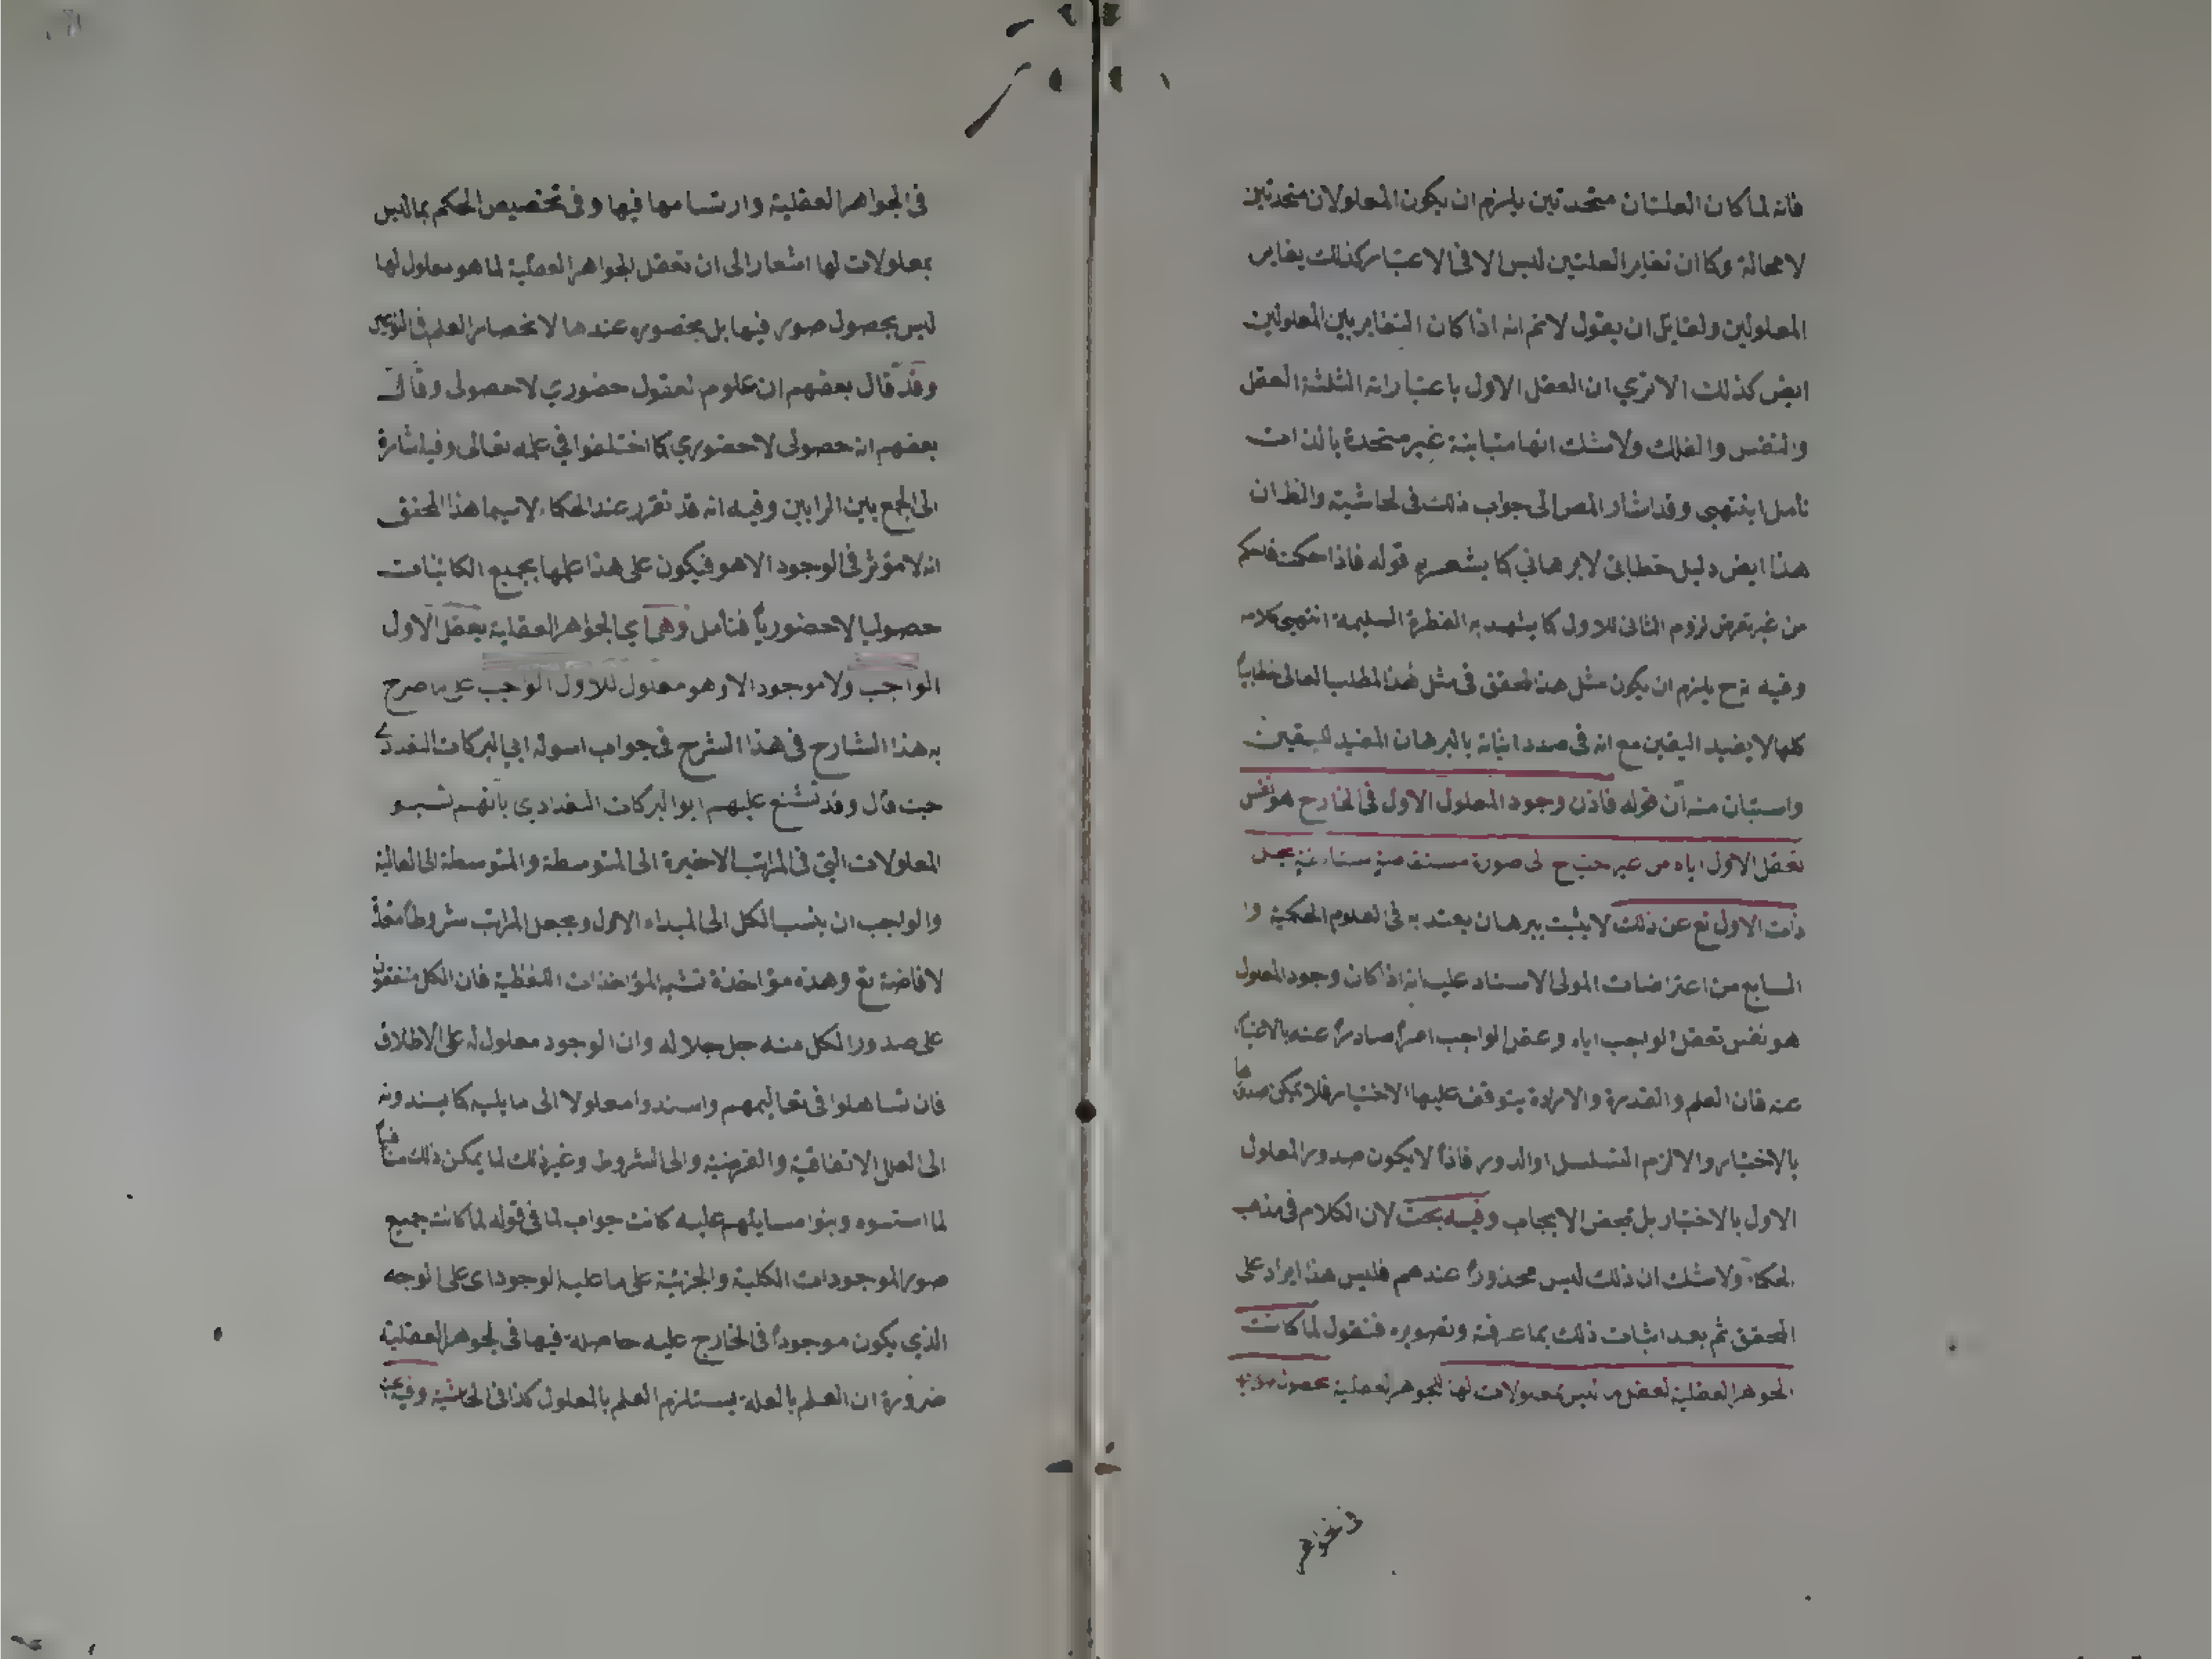 فانه لما كان العلتان متحدتين يلزم ان يكون المعلولان متحدتين
لا محالة وكما ان تغاير العلتين ليس الا فى الاعتبار كذلك يغاير
المعلولين ولقايل ان يقول لانم انه اذا كان التغاير بين المعلولين
ايض كذلك الا تري ان العقل الاول باعتباراته الثلثة العقل
والنفس والفلك ولا شك انها متباينة غير متحدة بالذات
تامل انتهى وقد اشار المص الى جواب ذلك فى لحاشية والظ ان
هذا ايض دليل خطابى لا برهاني كما يشعر به قوله فاذا حكمت فاحكم
من غير تعرض لزوم الثانى للاول كما يشهد به الفطرة السليمة انتهى كلامه
وفيه نه ح يلزم ان يكون مثل هذا المحقق فى مثل هذا المطلب العالى خطابياً
كلها لا يفيد اليقين مع انه فى صدد اثباته بالبرهان المفيد لليقين
واستبان منه أن قوله فاذن وجود المعلول الاول فى الخارج هو نفس
تعقل الاول اياه من غير
ذات الاول تع عن ذلك لا يثبت ببرهان يعتد به فى العلوم الحكمية وا
السابع من اعتراضات المولى الاستاد عليه انه اذا كان وجود المعلول
هو نفس تعقل الواجب اياه و الواجب امراً صادراً عنه
عنه فان العلم والقدرة والارادة يتوقف عليها الاختيار فلا يمكن صدورها
بالاختيار والا لزم التسلسل او الدور فاذاً لا يكون صدور المعلول
الاول بالاختيار بل بمحض الايجاب وفيه بحث لان الكلام فى مذهب
لحكماء ولا شك ان ذلك ليس محذوراً عندهم فليس هذا ايراد على
المحقق ثم بعد اثبات ذلك بما عرفته وتصويره فنقول لما كانت
الجواهر العقلية تعقل ما ليس بمعلولات لها للجواهر العقلية بحصول
فى الجواهر
فى الجواهر العقلية وارتسامها فيها وفى تخصيص الحكم بما ليس
بمعلولات لها اشعار الى ان تعقل الجواهر العقلية لما هو معلول لها
ليس بحصول صور فيها بل بحضوره عندها لانحصار العلم فى النوعين
وقد قال بعضهم ان علوم العقول حضوري لا حصولى وقال
بعضهم انه حصولى لا حضوري كما اختلفوا في علمه تعالى وفيه اشارة
الى الجمع بين الرايين وفيه انه قد تقرر عند الحكماء لا سيما هذا المحقق
انه لا مؤثر فى الوجود الا هو فيكون على هذا علمها بجميع الكاينات
حصوليا لا حضورياً فتامل وهى اي الجواهر العقلية يعقل الاول
الواجب ولا موجود الا وهو معلول للاول الواجب على ما صرح
به هذا الشارح فى هذا الشرح فى جواب اسوله ابى البركات البغدادي
حيث قال وقد تشنع عليهم ابو البركات البغدادي بأنهم نسبو
المعلولات التى فى المراتب الاخيرة الى المتوسطة والمتوسطة الى العالية
والواجب ان ينسب الكل الى المبداء الاول ويجعل المراتب شروطاً معدة
لافاضته تع وهذه مؤاخذة تشبه المؤاخذات اللفظية فان الكل متفقون
على صدور الكل منه جل جلاله وان الوجود معلول له على الاطلاق
فان تساهلوا فى تعاليمهم واسندوا معلولا الى ما يليه كما يسندونه
الى العلل الاتفاقية والعرضية والى الشروط وغير ذلك لما يمكن ذلك منافياً
لما اسسوه وبنوا مسايلهم عليه كانت جواب لما فى قوله لما كانت جميع
صور الموجودات الكلية والجزئية على ما عليه الوجود اى على الوجه
الذي يكون موجوداً فى الخارج عليه حاصلة فيها فى الجواهر العقلية
ضرورة ان العلم بالعلة يستلزم العلم بالمعلول كذا فى الحاشية وفيه